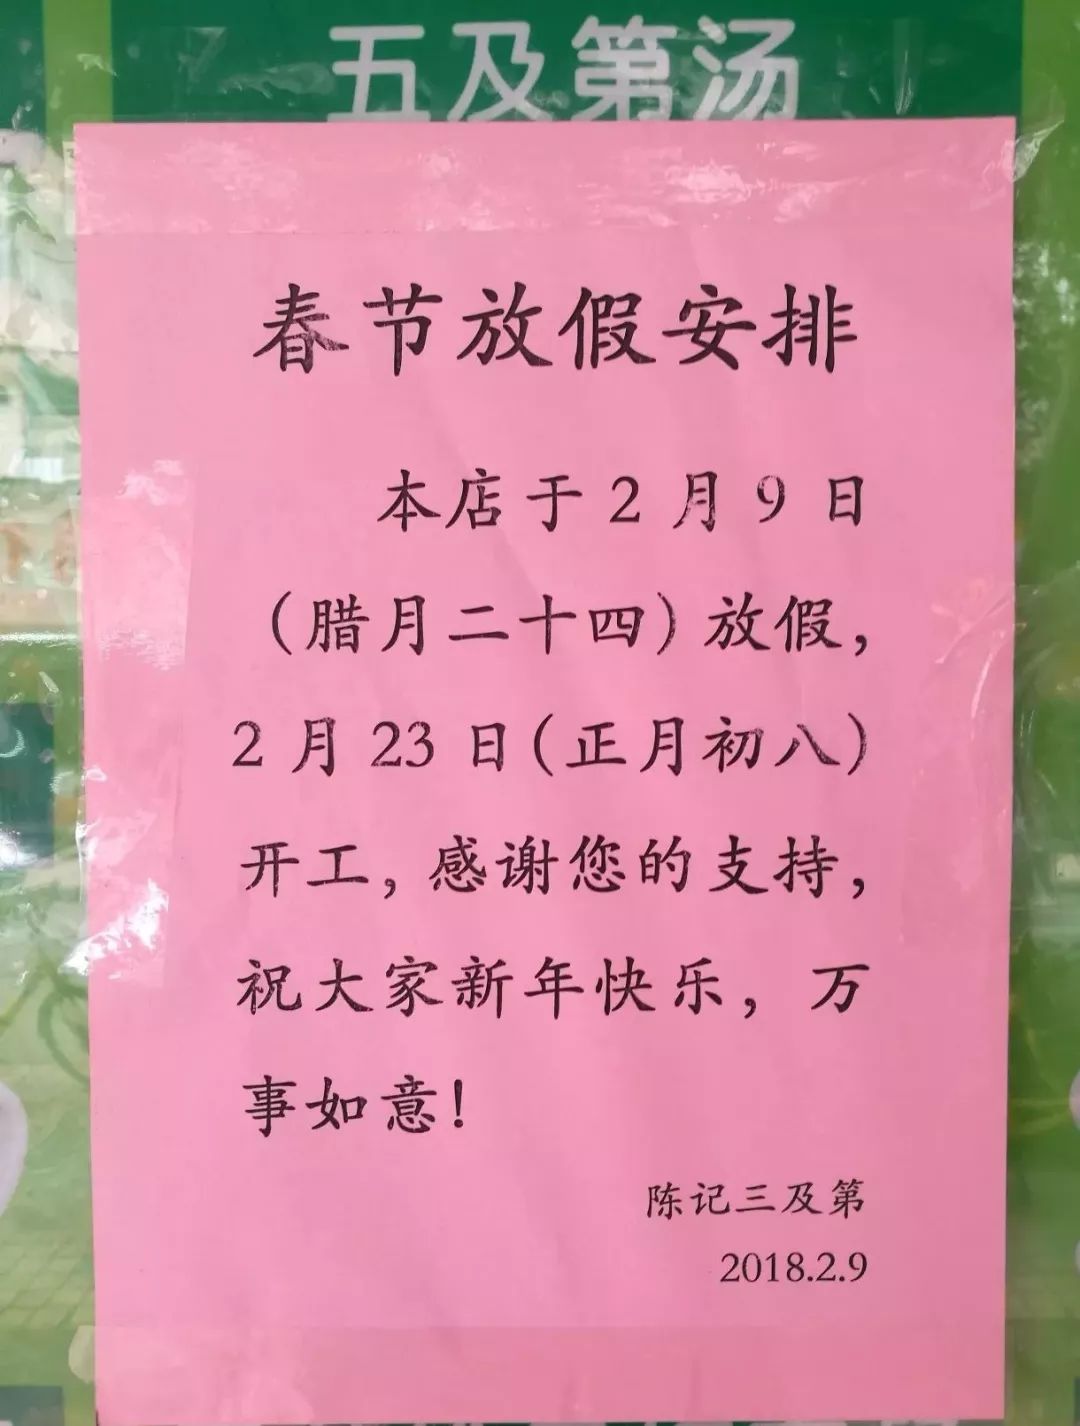 五及第汤
春节放假安排
本店于2月9日
（腊月二十四）放假，
2月23日（正月初八）
开工，感谢您的支持，
祝大家新年快乐，万
事如意！
陈记三及第
2018.2.9